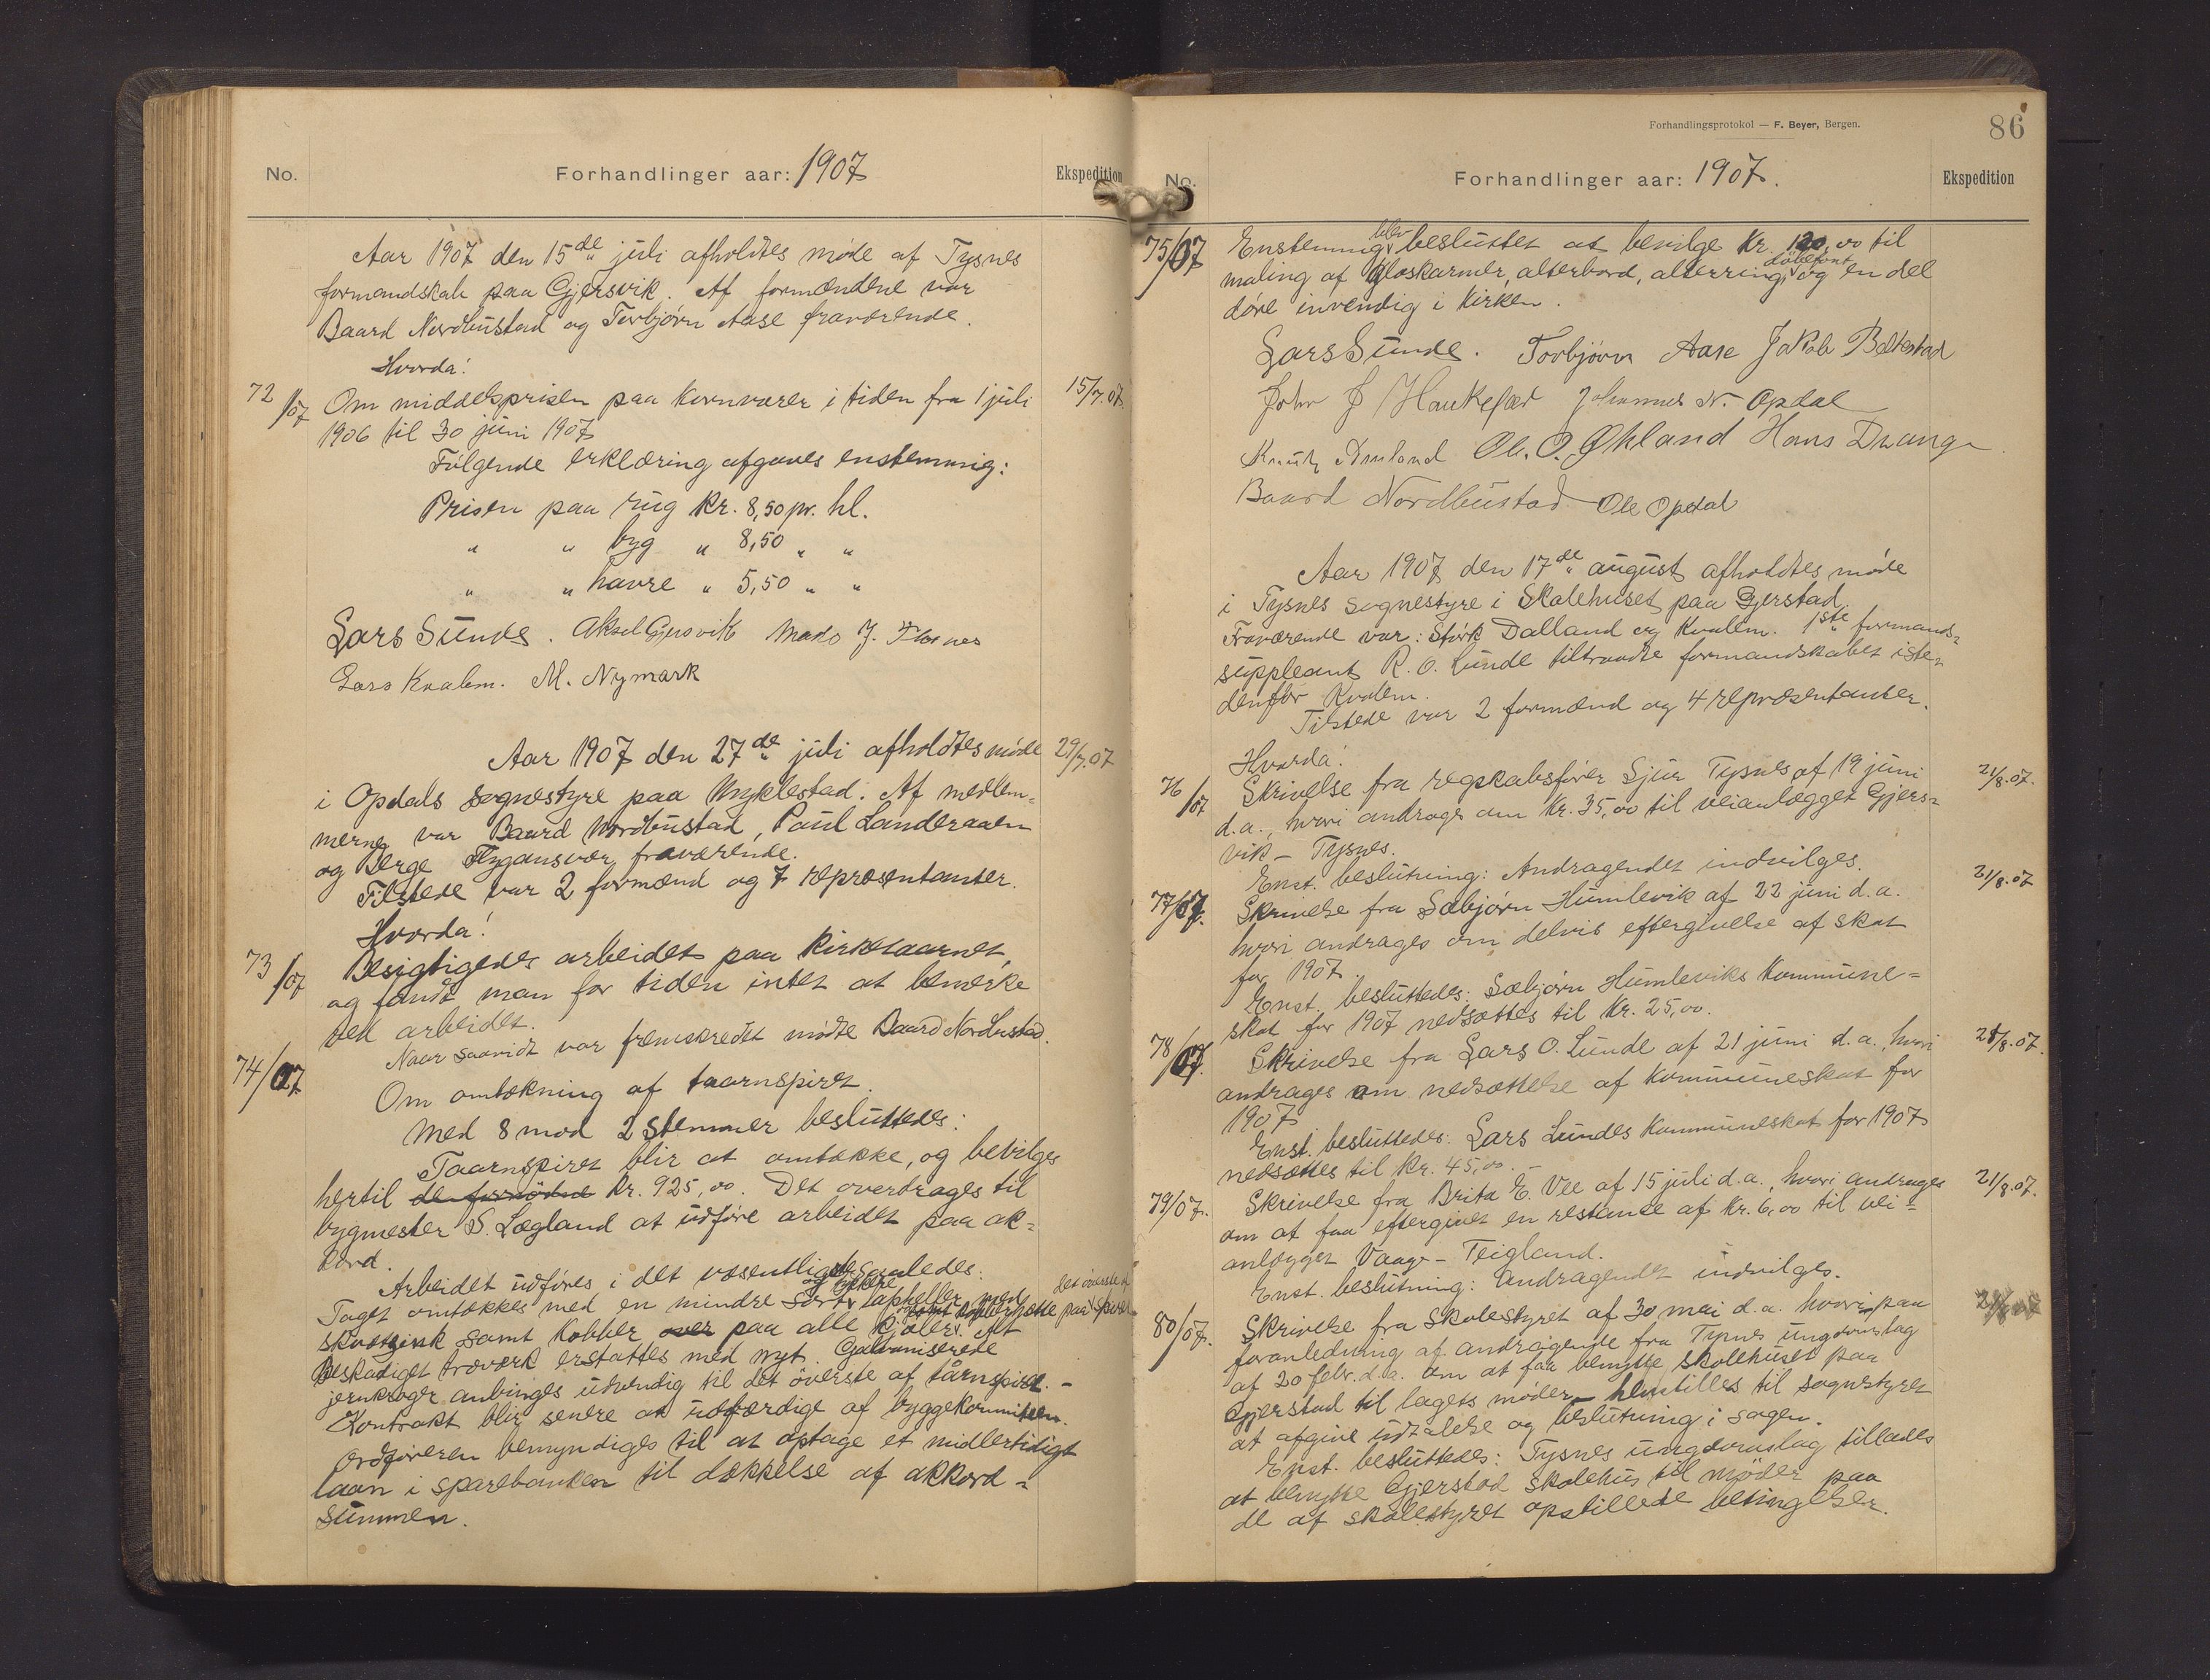 No.
Forhandlinger aar: 1907
Ekspedition
Aar 1907 den 15de juli afholdtes møde af Tysnes
formandskab paa Gjersvik. Af formændene var
Baard Nordbustad og Torbjørn Aase fraværende.
Hvorda:
72/07 Om middelsprisen paa kornvarer i tiden fra 1 juli 15/7.07.
1906 til 30 juni 1907
Følgende erklæring afgaves enstemmig:
Prisen paa rug kr. 8,50 pr. hl.
" " byg " 8,50 " "
" " havre " 5,50 " "
Lars Sunde. Aksel Gjersvik Mads J. Flornes
Lars Kvalem. M. Nymark
Aar 1907 den 27de juli afholdtes møde 29/7.07
i Opdals sognestyre paa Myklestad. Af medlem=
merne var Baard Nordbustad, Paul Landeraaen
og Berge Flygansvær fraværende.
Tilstede var 2 formænd og 7 repræsentanter.
Hvorda!
73/07 Besigtigedes arbeidet paa kirketaarnet,
og fandt man for tiden intet at bemerke
ved arbeidet.
Naar saavidt var fremskredet mødte Baard Nordbustad.
74/07
Om omtækning af taarnspiret.
Med 8 mod 2 stemmer besluttedes:
Taarnspiret blir at omtække, og bevilges
hertil de fornødne kr. 925,00. Det overdrages til
bygmester S. Lægland at udføre arbeidet paa ak=
kord.
Arbeidet udføres i det væsentligste saaledes:
Taget omtækkes med en mindre sort og tykkere tapheller med
skudtzink samt kobber over paa alle kjøler samt kobberhætte paa det øverste af spiret. Alt
Beskadiget træverk erstattes med nyt. Galvaniserede
jernkroger anbringes udvendig til det øverste af tårnspiret. –
Kontrakt blir senere at udfærdige af byggekomiteen.
Ordføreren bemyndiges til at optage et midlertidigt
laan i sparebanken til dækkelse af akkord=
summen.
Forhandlingsprotokol — F. Beyer, Bergen.
86
No.
Forhandlinger aar: 1907.
Ekspedition
75/07 Enstemmig blev besluttet at bevilge kr. 120,00 til
maling af gloskarmer, alterbord, alterring, døbefont og en del
døre invendig i kirken.
Lars Sunde. Torbjørn Aase Jakob Beltestad
John J Haukefær Johannes N. Opdal
Knut Amland Ole. O. Øhland Hans Drange
Baard Nordbustad Ole Opdal
Aar 1907 den 17de august afholdtes møde
i Tysnes sognestyre i Skolehuset paa Gjerstad.
Fraværende var: Størk Dalland og Kvalem. 1ste formands=
suppleant R. O. Lunde tiltraadte formandskabet iste=
denfor Kvalem.
Tilstede var 2 formænd og 4 repræsentanter.
Hvorda!
76/07 Skrivelse fra regnskabsfører Sjur Tysnes af 19 juni 21/8.07.
d.a., hvori androges om kr. 35,00 til veianlægget Gjers=
vik – Tysnes.
Enst. beslutning: Andragendet indvilges.
77/07. Skrivelse fra Sæbjørn Humlevik af 22 juni d.a. 21/8.07
hvori andrages om delvis eftergivelse af skat
for 1907.
Enst. besluttedes: Sæbjørn Humleviks kommune=
skat for 1907 nedsættes til kr. 25,00.
78/07. Skrivelse fra Lars O. Lunde af 21 juni d.a., hvori 21/8.07.
andrages om nedsættelse af kommuneskat for
1907
Enst. besluttedes: Lars Lundes kommuneskat for 1907
nedsættes til kr. 45,00.
79/07. Skrivelse fra Brita E. Vee af 15 juli d.a., hvori andrages 21/8.07.
om at faa eftergivet en restance af kr. 6,00 til vei=
anlægget Vaage – Teigland.
Enst. beslutning: Andragendet indvilges.
80/07. Skrivelse fra skolestyret af 30 mai d.a. hvori – paa
foranledning af andragende fra Tysnes ungdomslag
af 20 febr. d.a. om at faa benytte skolehuset paa
Gjerstad til lagets møder – henstilles til sognestyret
at afgive udtalelse og beslutning i sagen.
Enst. besluttedes: Tysnes ungdomslag tillades
at benytte Gjerstad skolehus til møder paa
de af skolestyret opstillede betingelser.